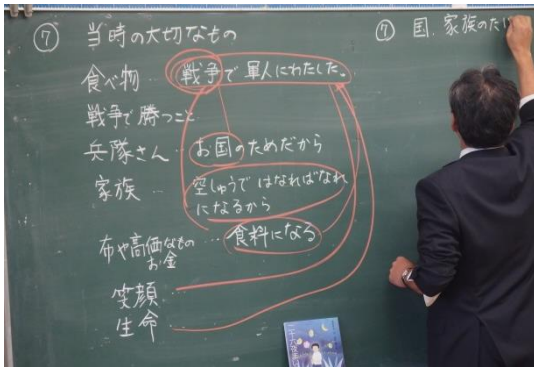 ⑦ 当時の大切なもの
食べ物… 戦争で軍人にわたした。
戦争で勝つこと
兵隊さん… お国のためだから
家族… 空しゅうではなればなれ
になるから
布や高価なもの … 食料になる
お金
笑顔
生命
⑦ 国、家族のた